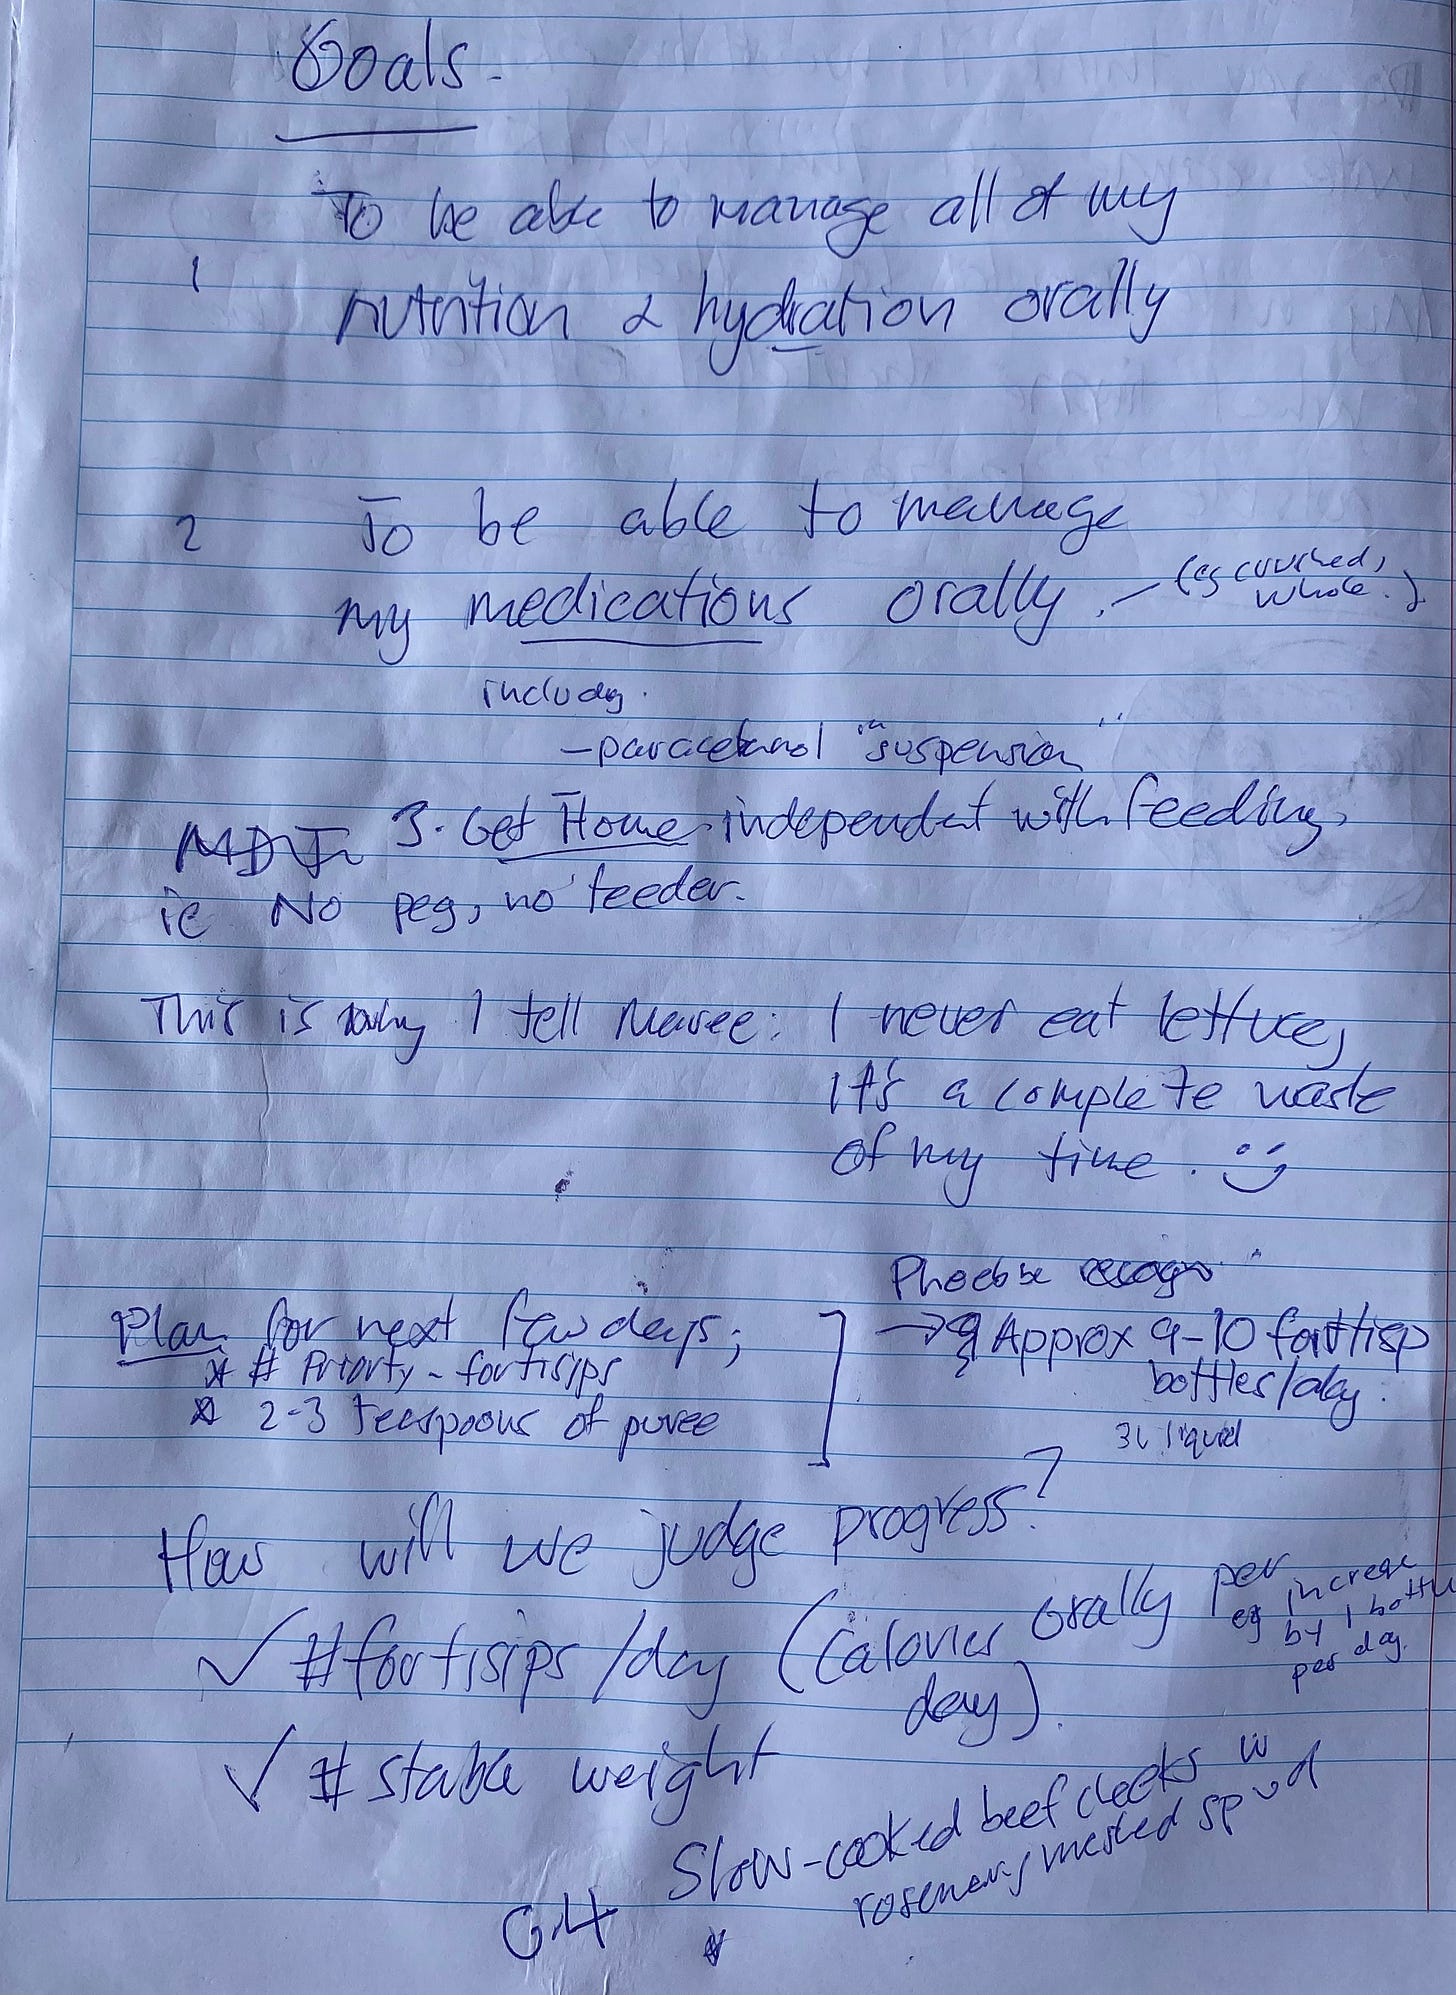 Goals -
To be able to manage all of my
1 nutrition & hydration orally
2 To be able to manage
my medications orally. - (eg crushed,
whole.)
including.
- paracetamol in "suspension"
MDT 3. Get Home independent with feeding,
ie No peg, no feeder.
This is why I tell Maree: I never eat lettuce,
it's a complete waste
of my time. :)
Phoebe
Plan for next few days;
* # Priority - fortisips
* 2-3 teaspoons of puree
→ Approx 9-10 fortisip
bottles/day.
3L liquid
How will we judge progress?
✓ # fortisips /day (calories orally per
day).
eg increase
by 1 bottle
per day.
✓ # stable weight
G.4 Slow-cooked beef cheeks w
rosemary mashed spud